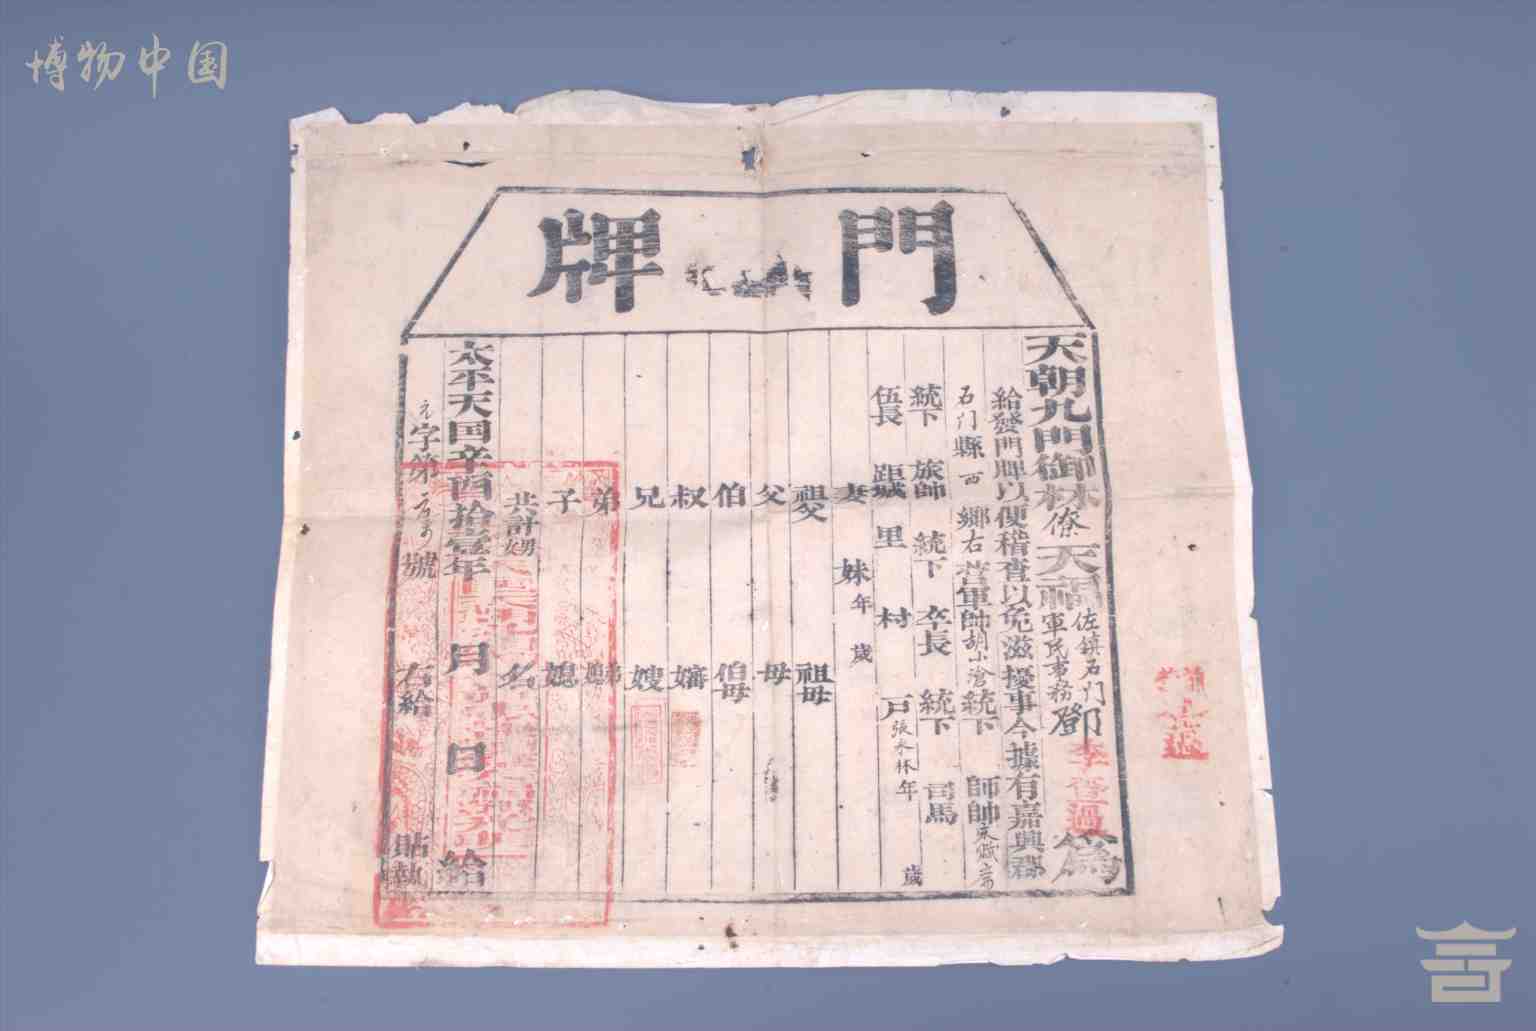 博物中国
門牌
天朝九門御林
僚
天福
佐鎮石门
軍民事務
鄧
為
李查過
給發門牌以便稽查以免滋擾事今據有嘉興郡
石门縣西鄉右營軍帥胡小滄統下師帥
統下旅帥統下卒長統下司馬
伍長距城里村戶張永林年歲
妻妹年歲
祖父祖母
父母
伯伯母
叔嬸
兄嫂
弟弟媳
子媳
共計男女名
太平天囯辛酉拾壹年月日給
元字第號右給貼執